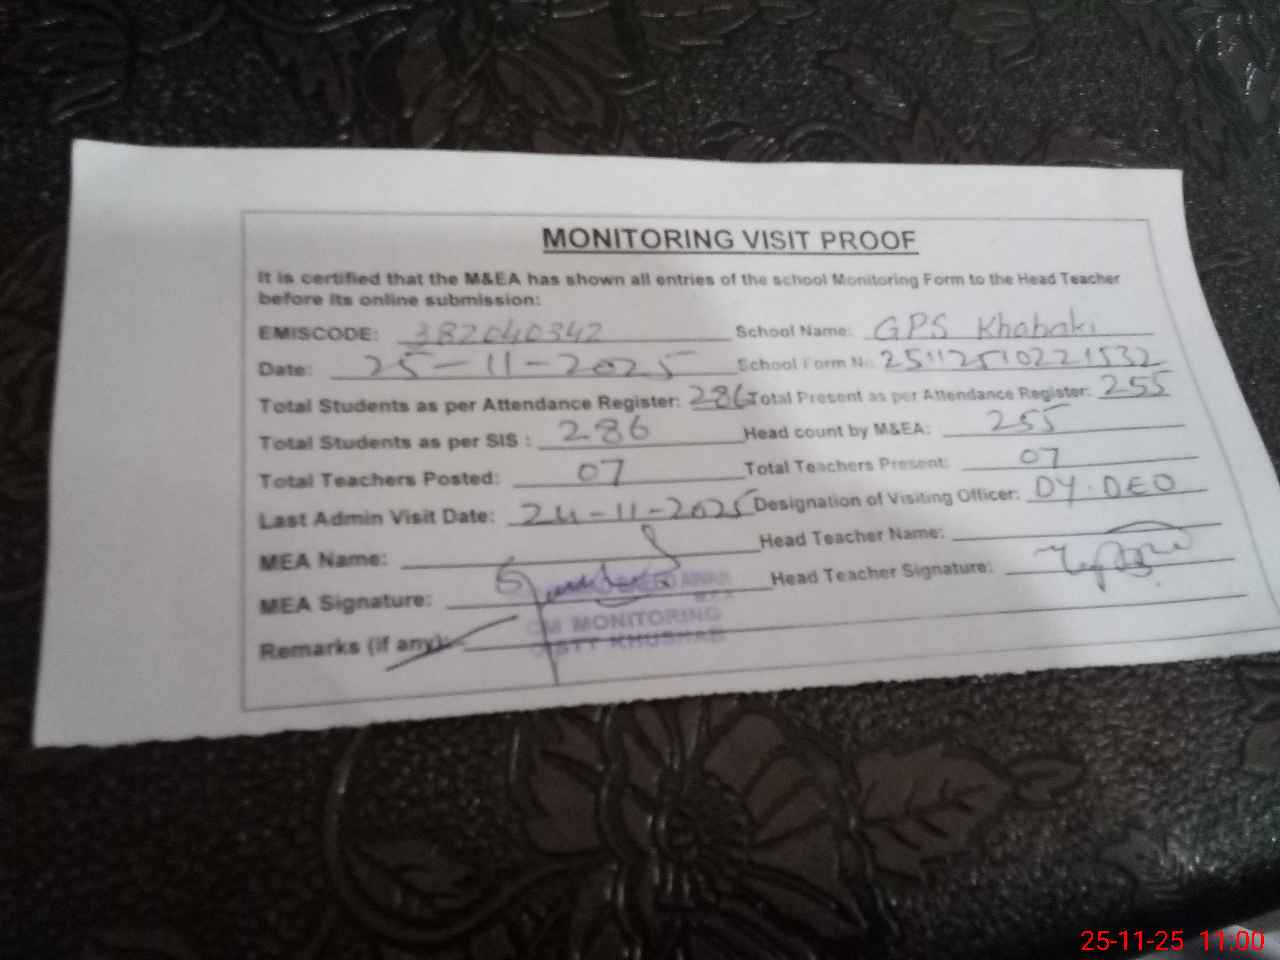 MONITORING VISIT PROOF
It is certified that the M&EA has shown all entries of the school Monitoring Form to the Head Teacher
before its online submission:
EMISCODE: 382040342 School Name: GPS Khabaki
Date: 25-11-2025 School Form No. 25112510221532
Total Students as per Attendance Register: 286 Total Present as per Attendance Register: 255
Total Students as per SIS : 286 Head count by M&EA: 255
Total Teachers Posted: 07 Total Teachers Present: 07
Last Admin Visit Date: 24-11-2025 Designation of Visiting Officer: DY.DEO
MEA Name: Head Teacher Name:
MEA Signature: Head Teacher Signature:
AWAN
MONITORING
Remarks (if any):
DISTT KHUSHAB
25-11-25 11:00